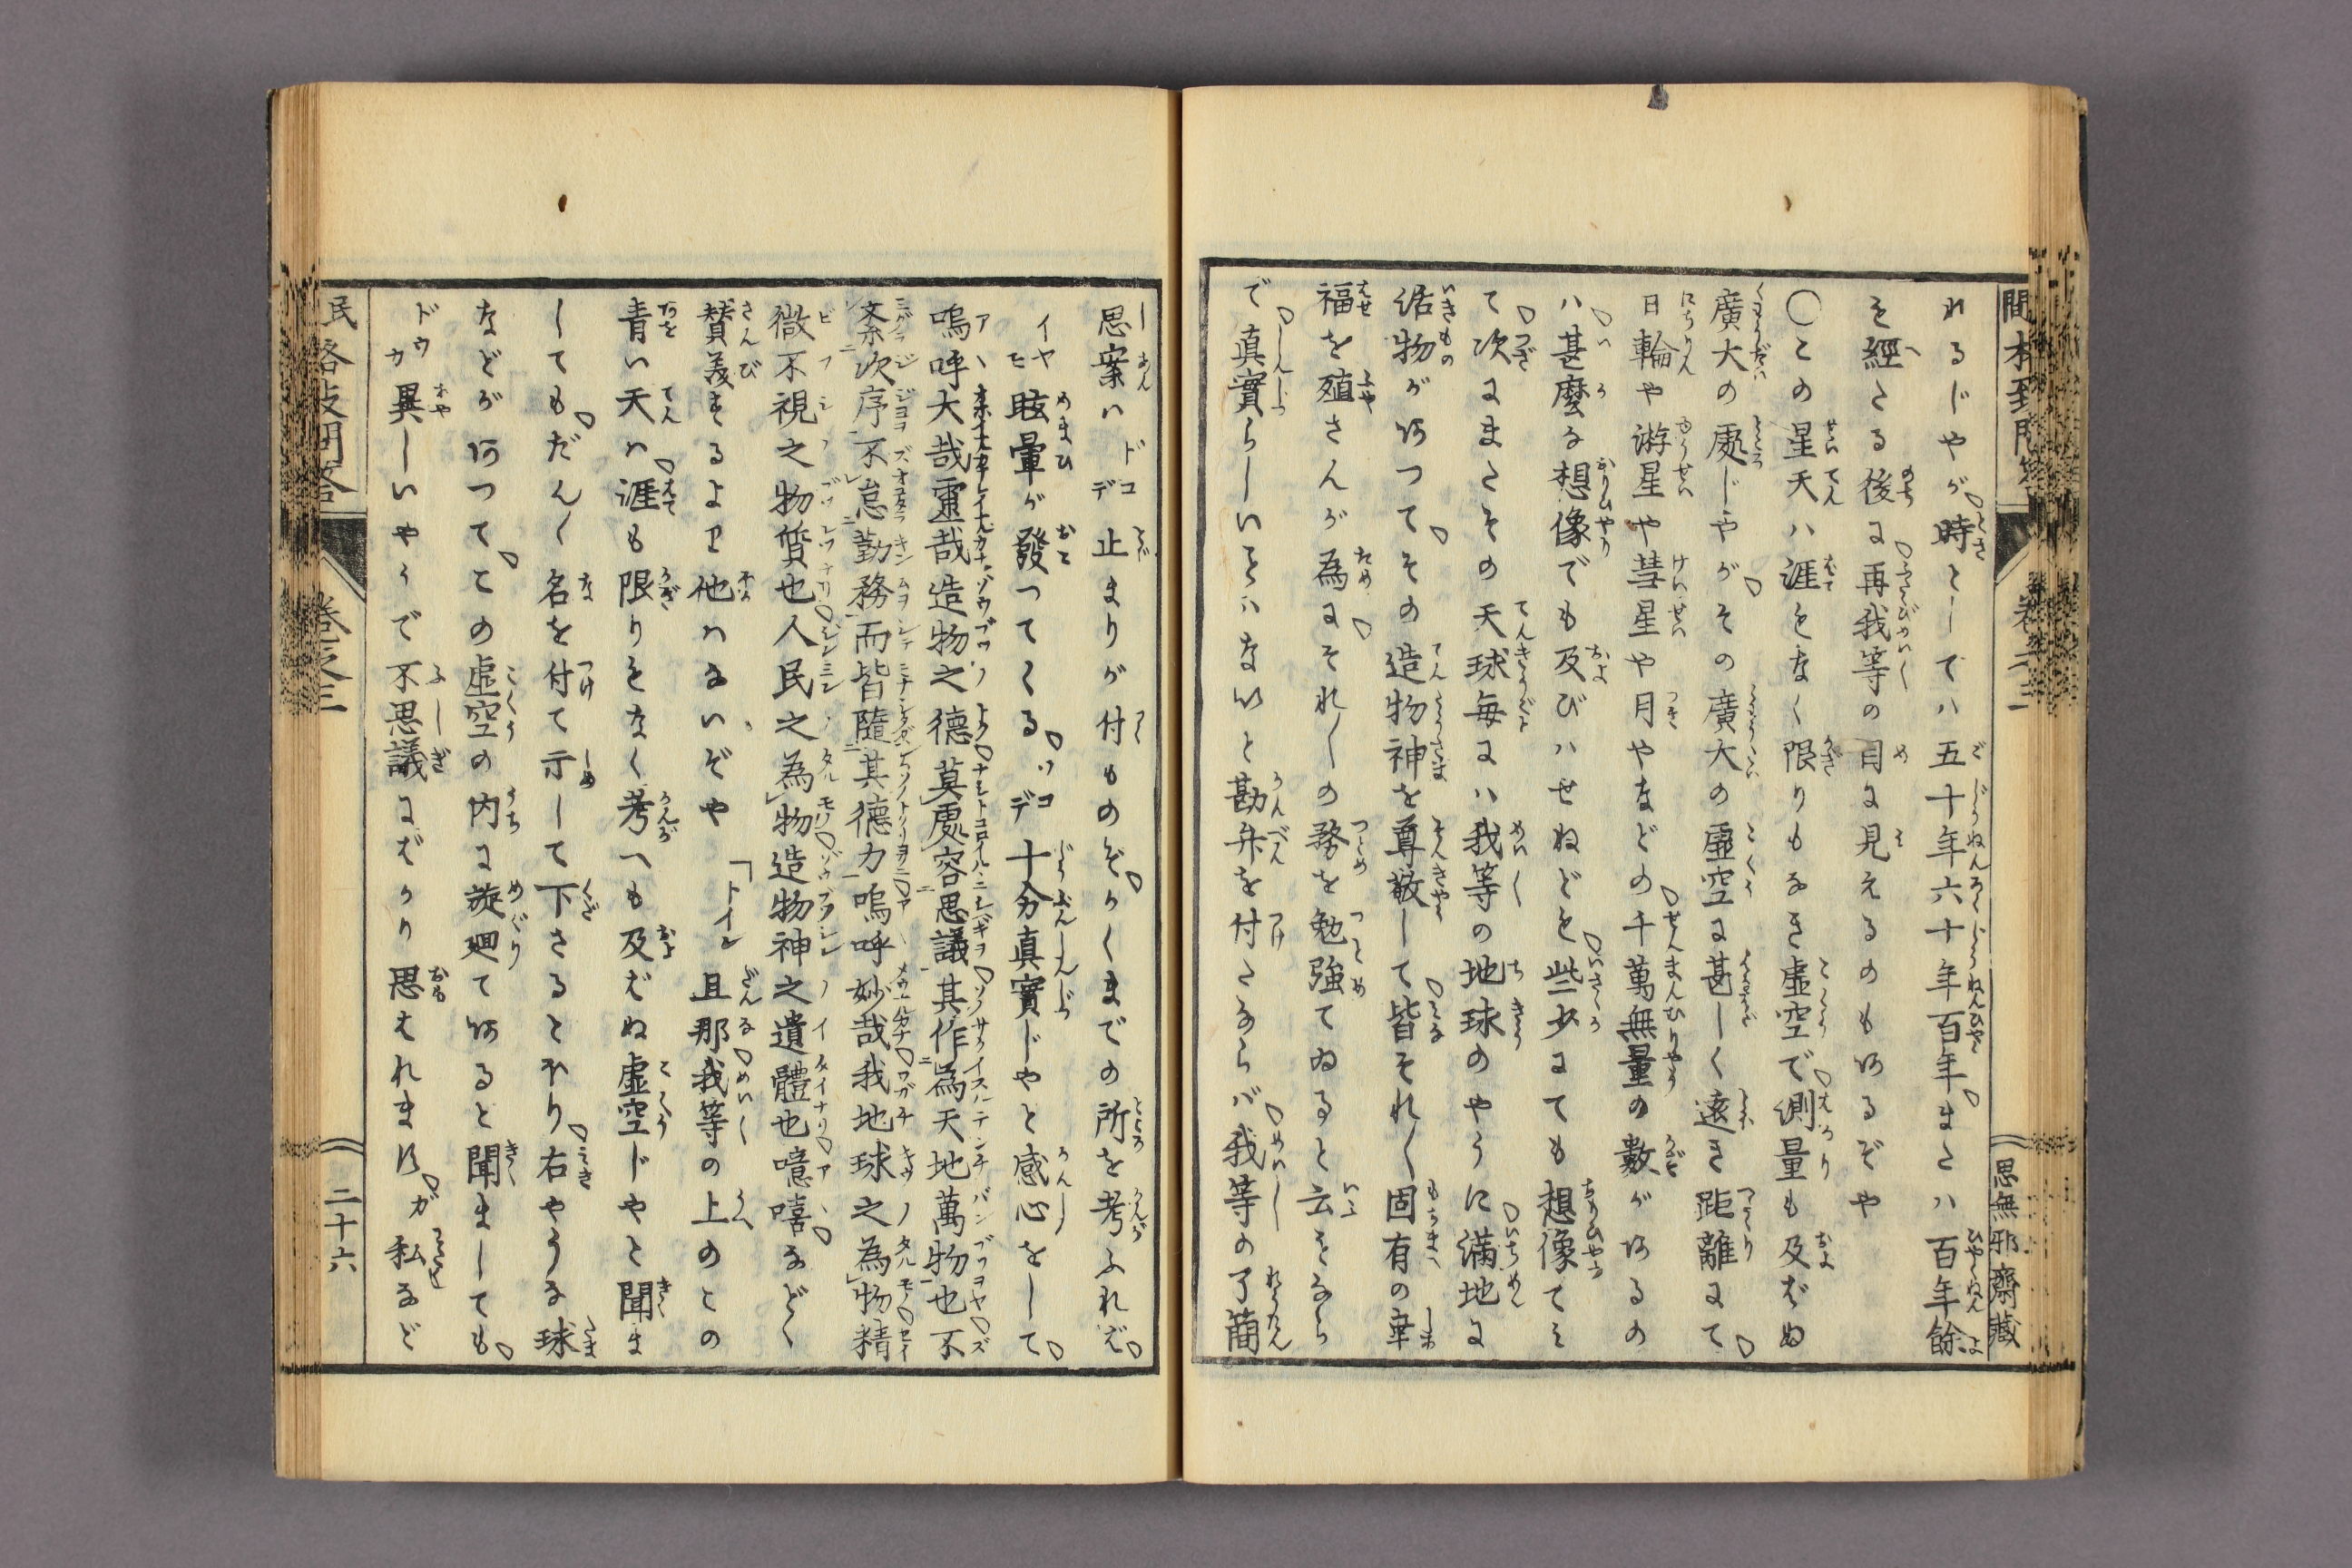 れるじやが時としてハ五十年六十年百年またハ百年餘
を經たる後に再我等の目に見えるのも何るぞや
〇この星天ハ涯もなく限りもなき虚空で測量も及ばぬ
廣大の處じやがその廣大の虚空に甚しく遠き距離にて
日輪や游星や彗星や月やなどの千萬無量の數が何るの
ハ甚麼な想像でも及びハせねども些少にても想像てみ
て次にまたその天球毎にハ我等の地球のやうに滿地に
活物が何つてその造物神を尊敬して皆それ〱固有の幸
福を殖さんが為にそれ〱の務を勉強てゐると云をなら
で真實らしいをハないと勘弁を付たならバ我等の了簡
思無邪齋藏
思案ハドコデ止まりが付ものぞかくまでの所を考ふれば
イヤモ眩暈が發つてくるソコデ十分真實じやと感心をして
嗚呼大哉靈哉造物之德莫處容思議其作為天地萬物也不
紊次序不怠勤務而皆隨其德力嗚呼妙哉我地球之為物精
微不視之物質也人民之為物造物神之遺體也噫嘻など〱
賛美するより他ハないぞや「トイヒ且那我等の上のとの
青い天ハ涯も限りもなく考へも及ばぬ虚空じやと聞ま
してもだん〱名を付て示して下さるとホり右やうな球
などが何つてこの虚空の内に旋廻て何ると聞ましても
ドウカ異しいやうで不思議にばかり思はれますガ私など
卷之三
二十六